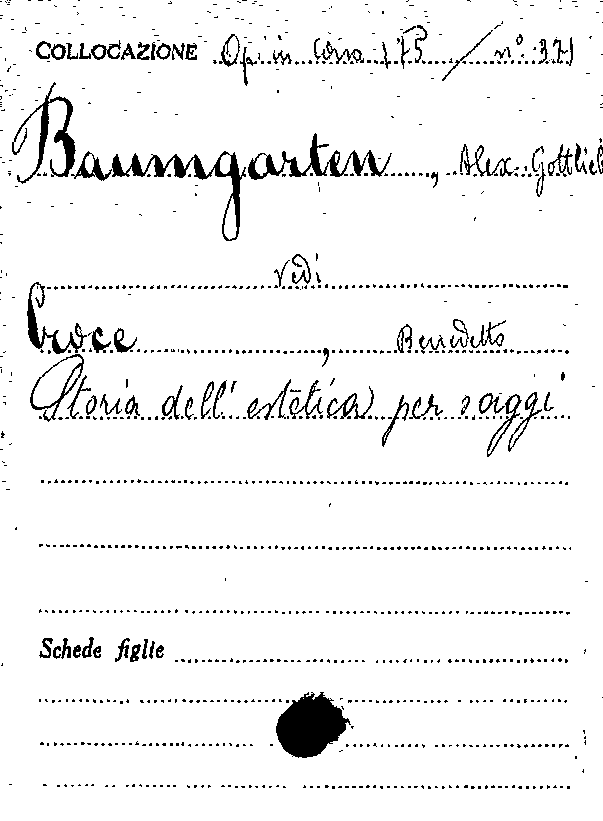 COLLOCAZIONE Op. in Corso 175 / n° 371
Baumgarten, Alex. Gottlieb
vedi
Croce, Benedetto
Storia dell'estetica per saggi
Schede figlie